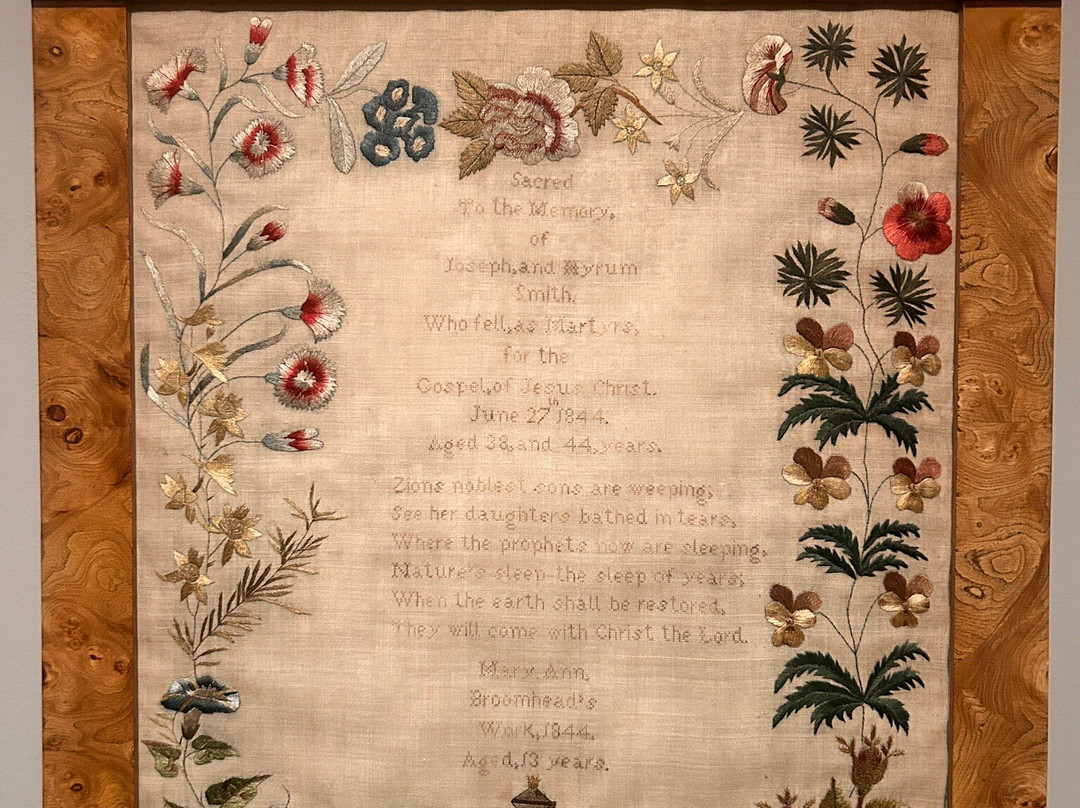 Sacred
To the Memory,
of
Joseph, and Hyrum
Smith,
Who fell, as Martyrs,
for the
Gospel, of Jesus Christ.
June 27th 1844.
Aged 38, and 44, years.
Zions noblest sons are weeping,
See her daughters bathed in tears,
Where the prophets now are sleeping,
Nature's sleep-the sleep of years;
When the earth shall be restored,
They will come with Christ the Lord.
Mary, Ann,
Broomhead's
Work, 1844,
Aged, 13 years.